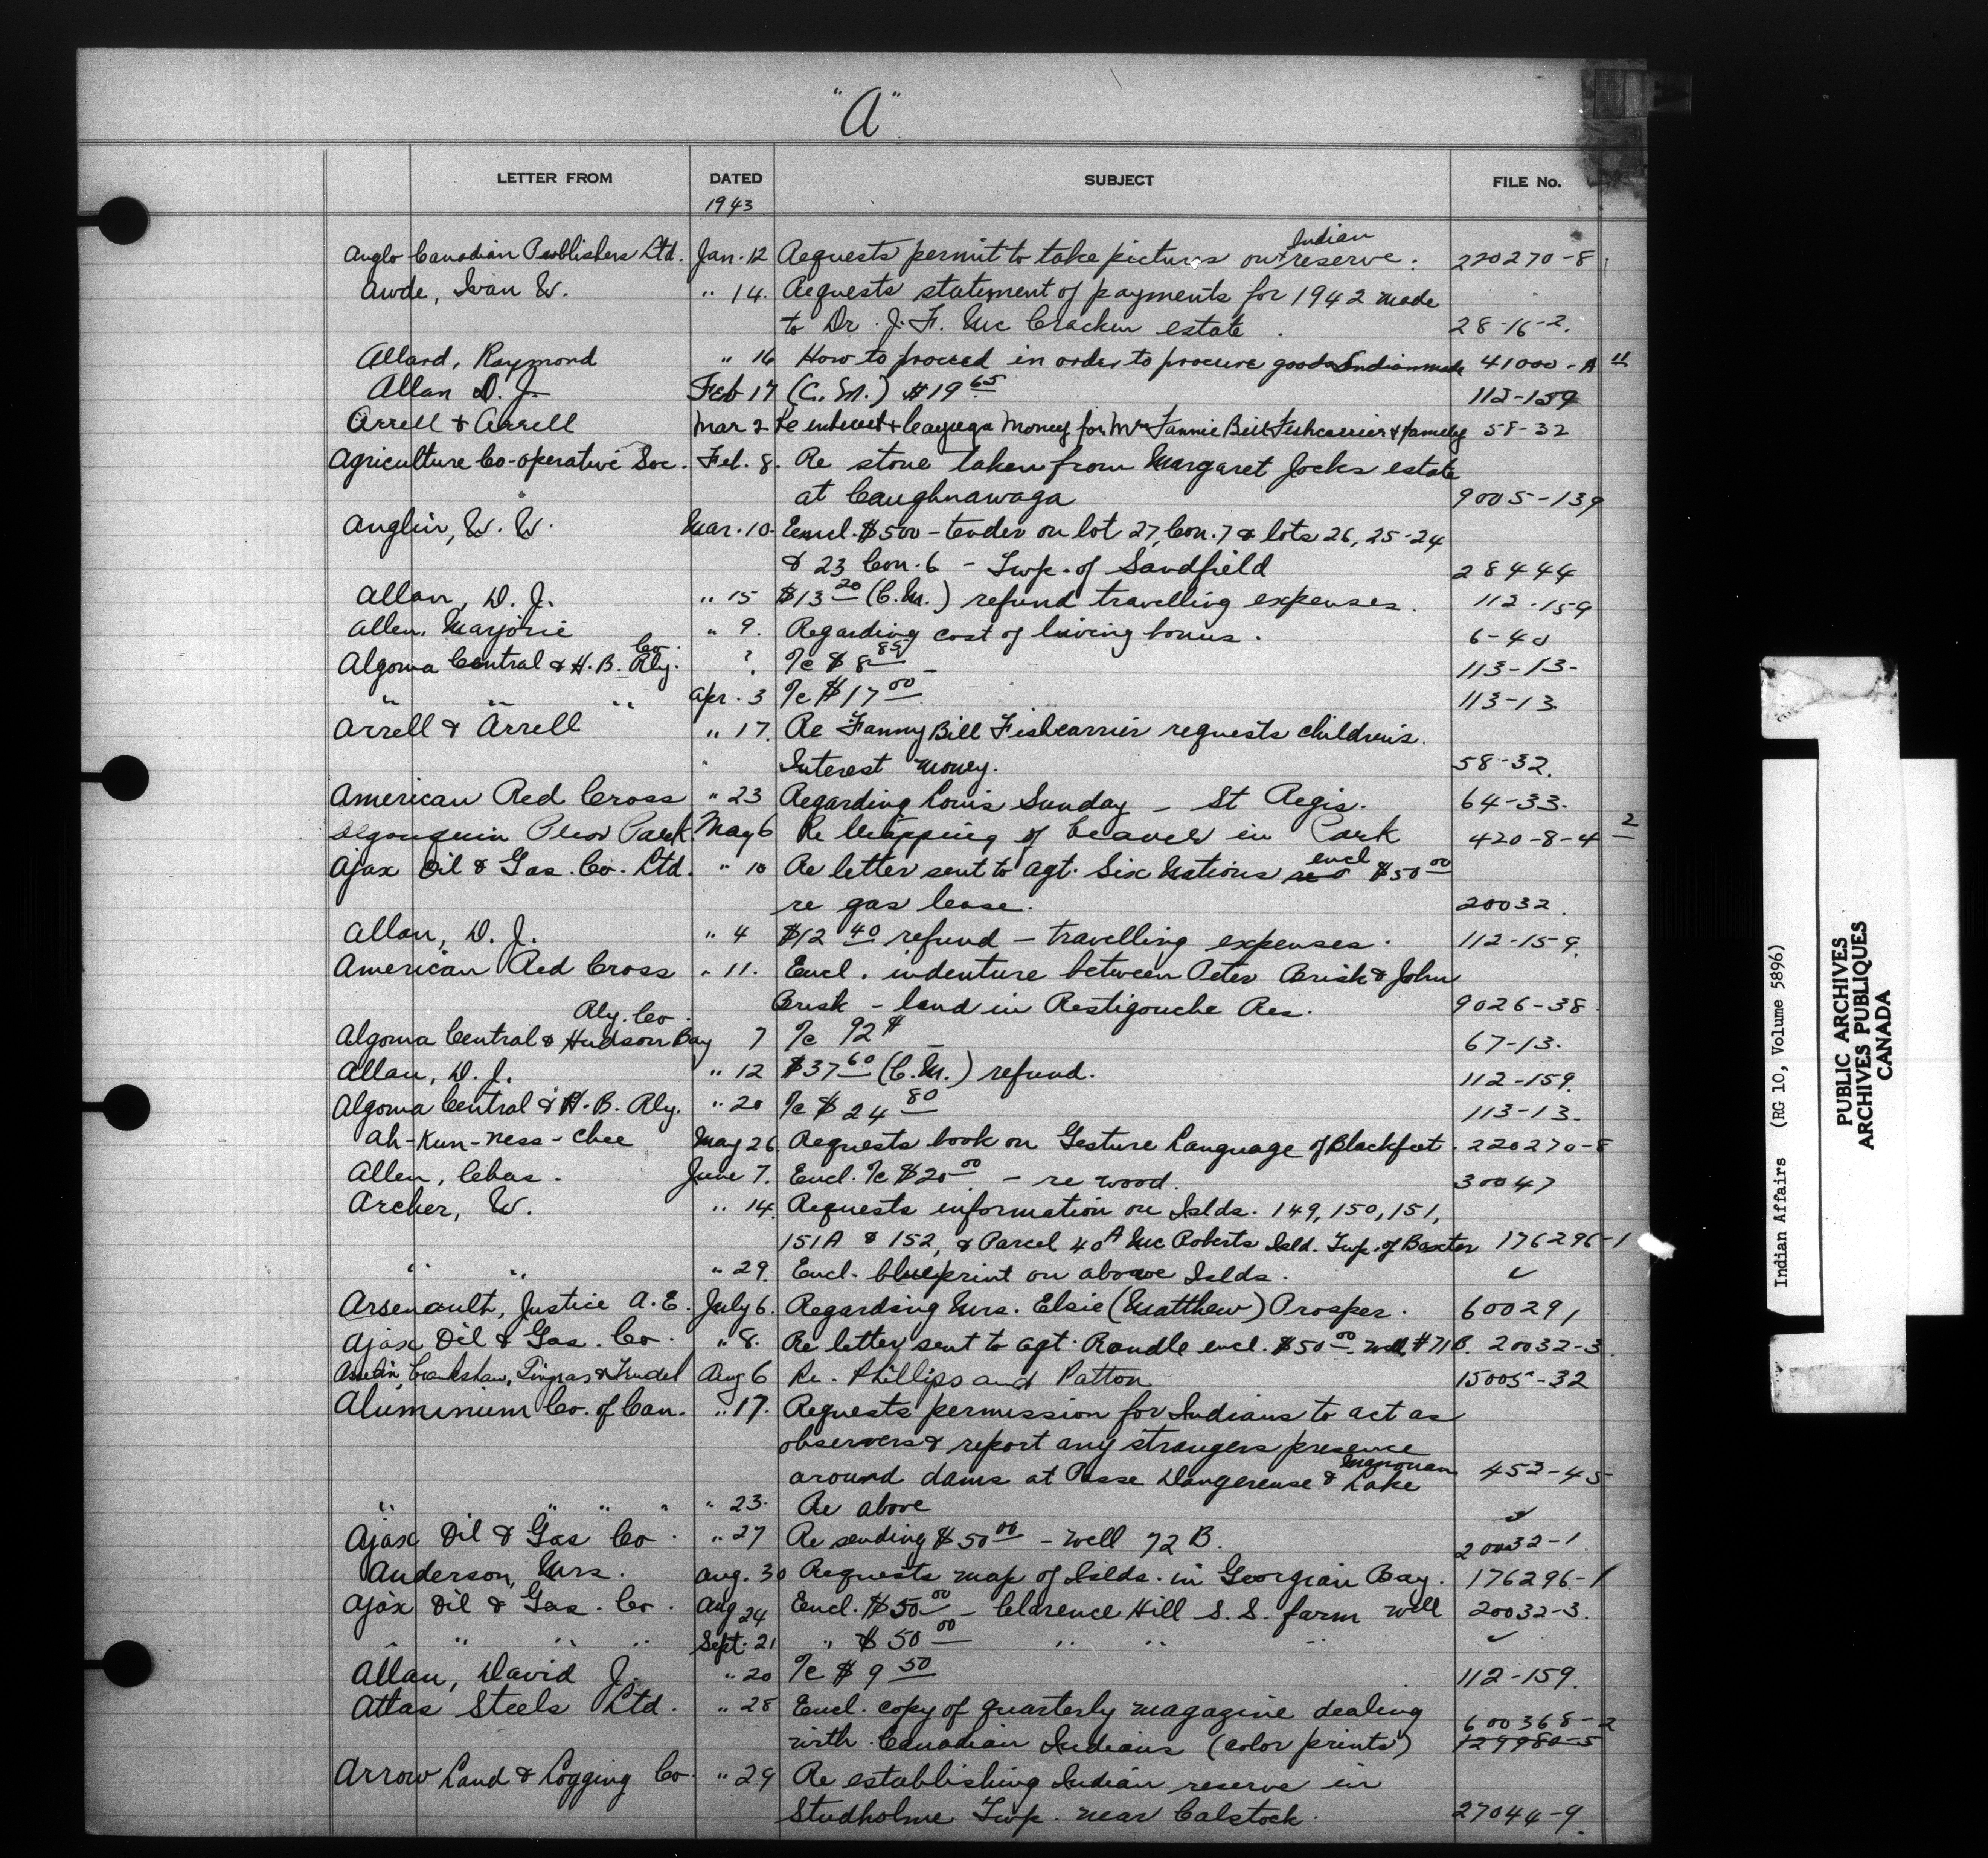 "A"
LETTER FROM DATED SUBJECT FILE No.
1943
Anglo Canadian Publishers Ltd. Jan. 12 Requests permit to take pictures on Indian reserve. 220270-8
Awde, Ivan W. " 14. Requests statement of payments for 1942 made
to Dr. J. F. McCracken estate. 28-16-2.
Allard, Raymond " 16 How to proceed in order to procure goods Indian made 41000-A 11
Allan D. J. Feb 17 (C.M.) $19 65 112-159
Arrell & Arrell Mar 2 Re interest & Cayuga Money for Mrs Fannie Bill Fishcarrier & family 58-32
Agriculture Co-operative Soc. Feb. 8. Re stone taken from Margaret Jocks estate
at Caughnawaga 9005-139
Anglin, W. W. Mar. 10. Encl. $500 - tender on lot 27, Con. 7 & lots 26, 25-24
& 23 Con. 6 - Twp. of Sandfield 28444
Allan, D. J. " 15 $13 20 (C.M.) refund travelling expenses. 112-159
Allen, Marjorie " 9. Regarding cost of living bonus. 6-40
Algoma Central & H. B. Rly. Co. ? /c $8 85 - 113-13-
" " " Apr. 3 /c $17 00 113-13
Arrell & Arrell " 17. Re Fanny Bill Fishcarrier requests children's
Interest money. 58-32.
American Red Cross " 23 Regarding Louis Sunday - St Regis. 64-33.
Algonquin Prov Park. May 6 Re trapping of beaver in Park 420-8-4 2
Ajax Oil & Gas. Co. Ltd. " 10 Re letter sent to Agt. Six Nations encl $50 00
re gas lease. 20032.
Allan, D. J. " 4 $12 40 refund - travelling expenses. 112-159.
American Red Cross " 11. Encl. indenture between Peter Brisk & John
Brisk - land in Restigouche Res. 9026-38.
Rly. Co.
Algoma Central & Hudson Bay 7 /c 92¢ - 67-13.
Allan, D. J. " 12 $37 60 (C.M.) refund. 112-159.
Algoma Central & H. B. Rly. " 20 /c $24 80 113-13-
Ah-Kun-Ness-Chee May 26. Requests book on Gesture Language of Blackfeet. 220270-8
Allen, Chas. June 7. Encl. /c $20 00. - re wood. 30047
Archer, W. " 14. Requests information on Islds. 149, 150, 151,
151A & 152, & Parcel 40A McRoberts Isld. Twp. of Baxter 176296-1
" " " 29. Encl. blueprint on above Islds. ✓
Arsenault, Justice A. E. July 6. Regarding Mrs. Elsie (Matthew) Prosper. 600291
Ajax Oil & Gas. Co. " 8. Re letter sent to Agt. Randle encl. $50 00. Well #71B. 20032-3.
Asselin, Crankshaw, Gingras & Trudel Aug 6 Re. Phillips and Patton 15005-32
Aluminium Co. of Can. " 17. Requests permission for Indians to act as
observers & report any strangers presence
around dams at Passe Dangereuse & Lake Manouan 452-45
" " " " " 23. Re above ✓
Ajax Oil & Gas Co. " 27 Re sending $50 00 - well 72 B. 20032-1
Anderson, Mrs. Aug. 30 Requests map of Islds. in Georgian Bay. 176296-1
Ajax Oil & Gas. Co. Aug 24 Encl. $50 00 - Clarence Hill S. S. farm well 20032-3.
" " " " Sept. 21 " $50 00 " " " ✓
Allan, David J. " 20 /c $9 50 112-159.
Atlas Steels Ltd. " 28 Encl. copy of quarterly magazine dealing 600368-2
with Canadian Indians (color prints) 129980-5
Arrow Land & Logging Co. " 29 Re establishing Indian reserve in
Studholme Twp. near Calstock. 27044-9.
Indian Affairs (RG 10, Volume 5896)
PUBLIC ARCHIVES
ARCHIVES PUBLIQUES
CANADA